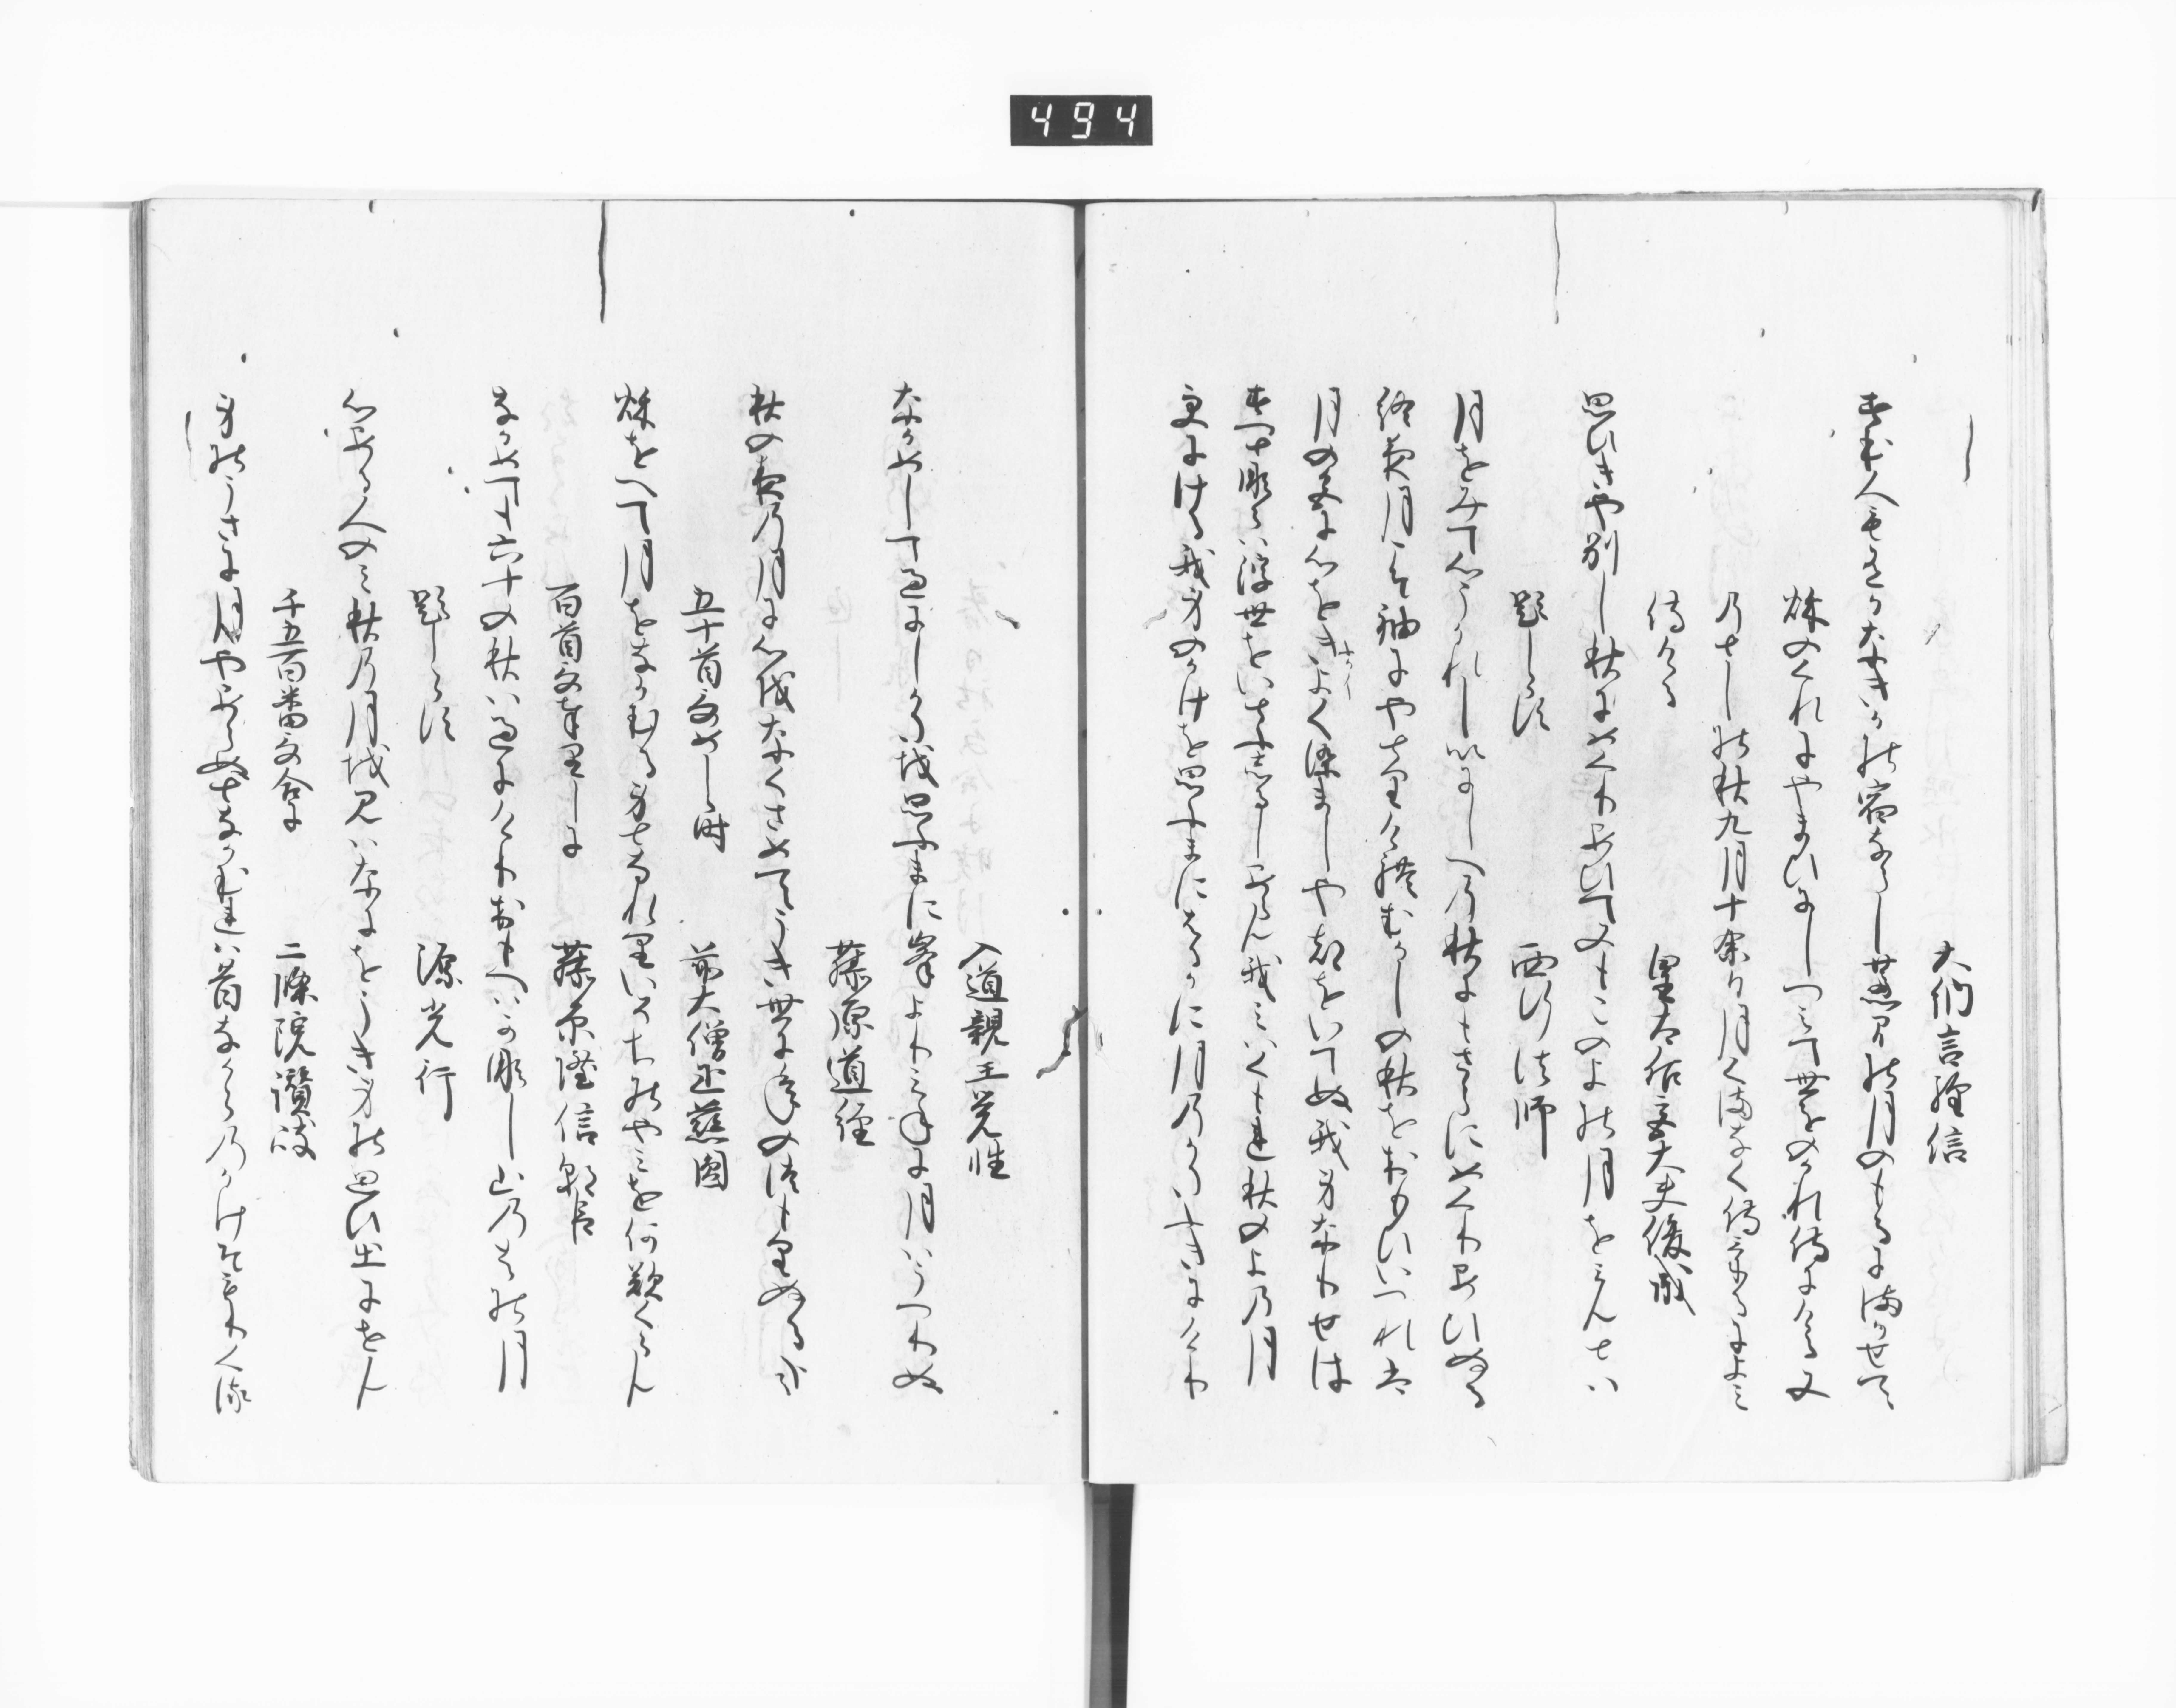 494
大納言経信
すむ人もあるかなきかの宿ならし蘆間の月のもるにまかせて
秋のくれにやまひにしつみて世をのかれ侍にける又
のとしの秋九月十余り月くまなく侍けるによみ
侍ける　皇太后宮大夫俊成
思ひきや別し秋にめくりあひて又もこのよの月をみんとは
題しらす　西行法師
月をみて心うかれしいにしへの秋にもさらにめくりあひぬる
終夜月こそ袖にやとりけれむかしの秋をおもひいつれは
月の色に心をきよく染ましや都をいてぬ我身なりせは
すつとならは浮世をいとふしるしあらん我みはくもれ秋のよの月
更にける我身のかけを思ふまにはるかに月のかたふきにけり
入道親王覚性
なかめして過にしかたを思ふまに峯よりみねに月はうつりぬ
藤原道経
秋の夜の月に心をなくさめてうき世に年のつもりぬるかな
五十首哥めしし時　前大僧正慈円
秋をへて月をなかむる身となれりいそちのやみを何歎くらん
百首哥奉りしに　藤原隆信朝臣
なかめても六十の秋は過にけりおもへはかなし山のはの月
題しらす　源光行
心ある人のみ秋の月をみはなにをうき身の思ひ出にせん
千五百番哥合に　二条院讃岐
身のうさに月やあらぬとなかむれは昔なからのかけそもりくる